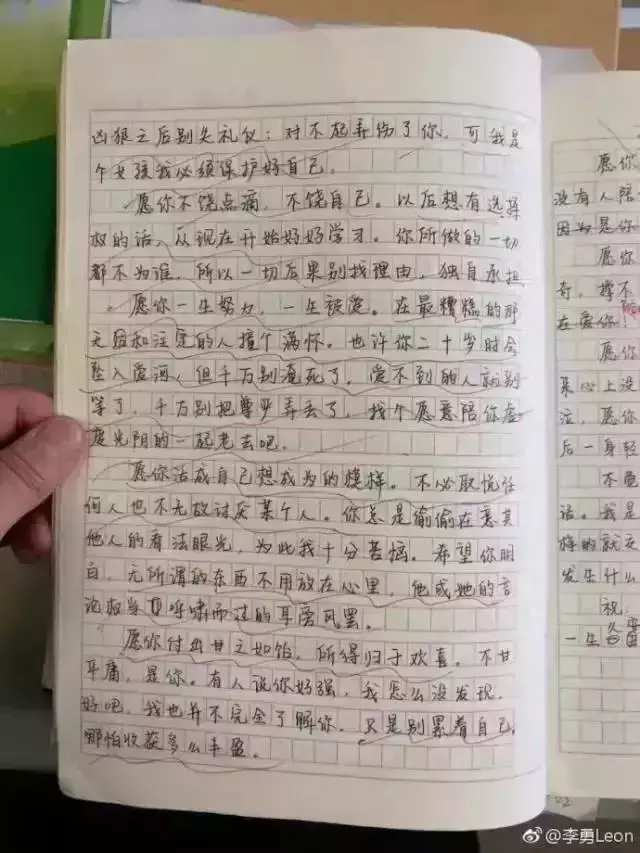 凶狠之后别失礼仪：对不起弄伤了你，可我是
个女孩我必须保护好自己。
愿你不饶点滴，不饶自己。以后想有选择
权的话，从现在开始好好学习。你所做的一切
都不为谁，所以一切后果别找理由，独自承担
愿你一生努力，一生被爱。在最糟糕的那
天师和注定的人撞个满怀。也许你二十岁时会
坠入爱河，但千万别淹死了，爱不到的人就别
等了，千万别把尊严弄丢了，找个愿意陪你虚
度光阴的一起老去吧。
愿你活成自己想成为的模样。不必取悦任
何人也不无故讨厌某个人。你总是偷偷在意其
他人的看法眼光，为此我十分苦恼。希望你明
白，无所谓的东西不用放在心里，他或她的言
论权当呼啸而过的耳旁风罢。
愿你付出甘之如饴，所得归于欢喜。不甘
平庸，是你。有人说你好强，我怎么没发现，
好吧，我也并不完全了解你，只是别累着自己，
哪怕收获多么丰盈。
愿
没有人陪
因为是你
愿你
奇，撑不
在爱你
愿
某心上没
泣，愿你
后一身轻
不
话。我是
发生什么
祝
一生
@李勇Leon